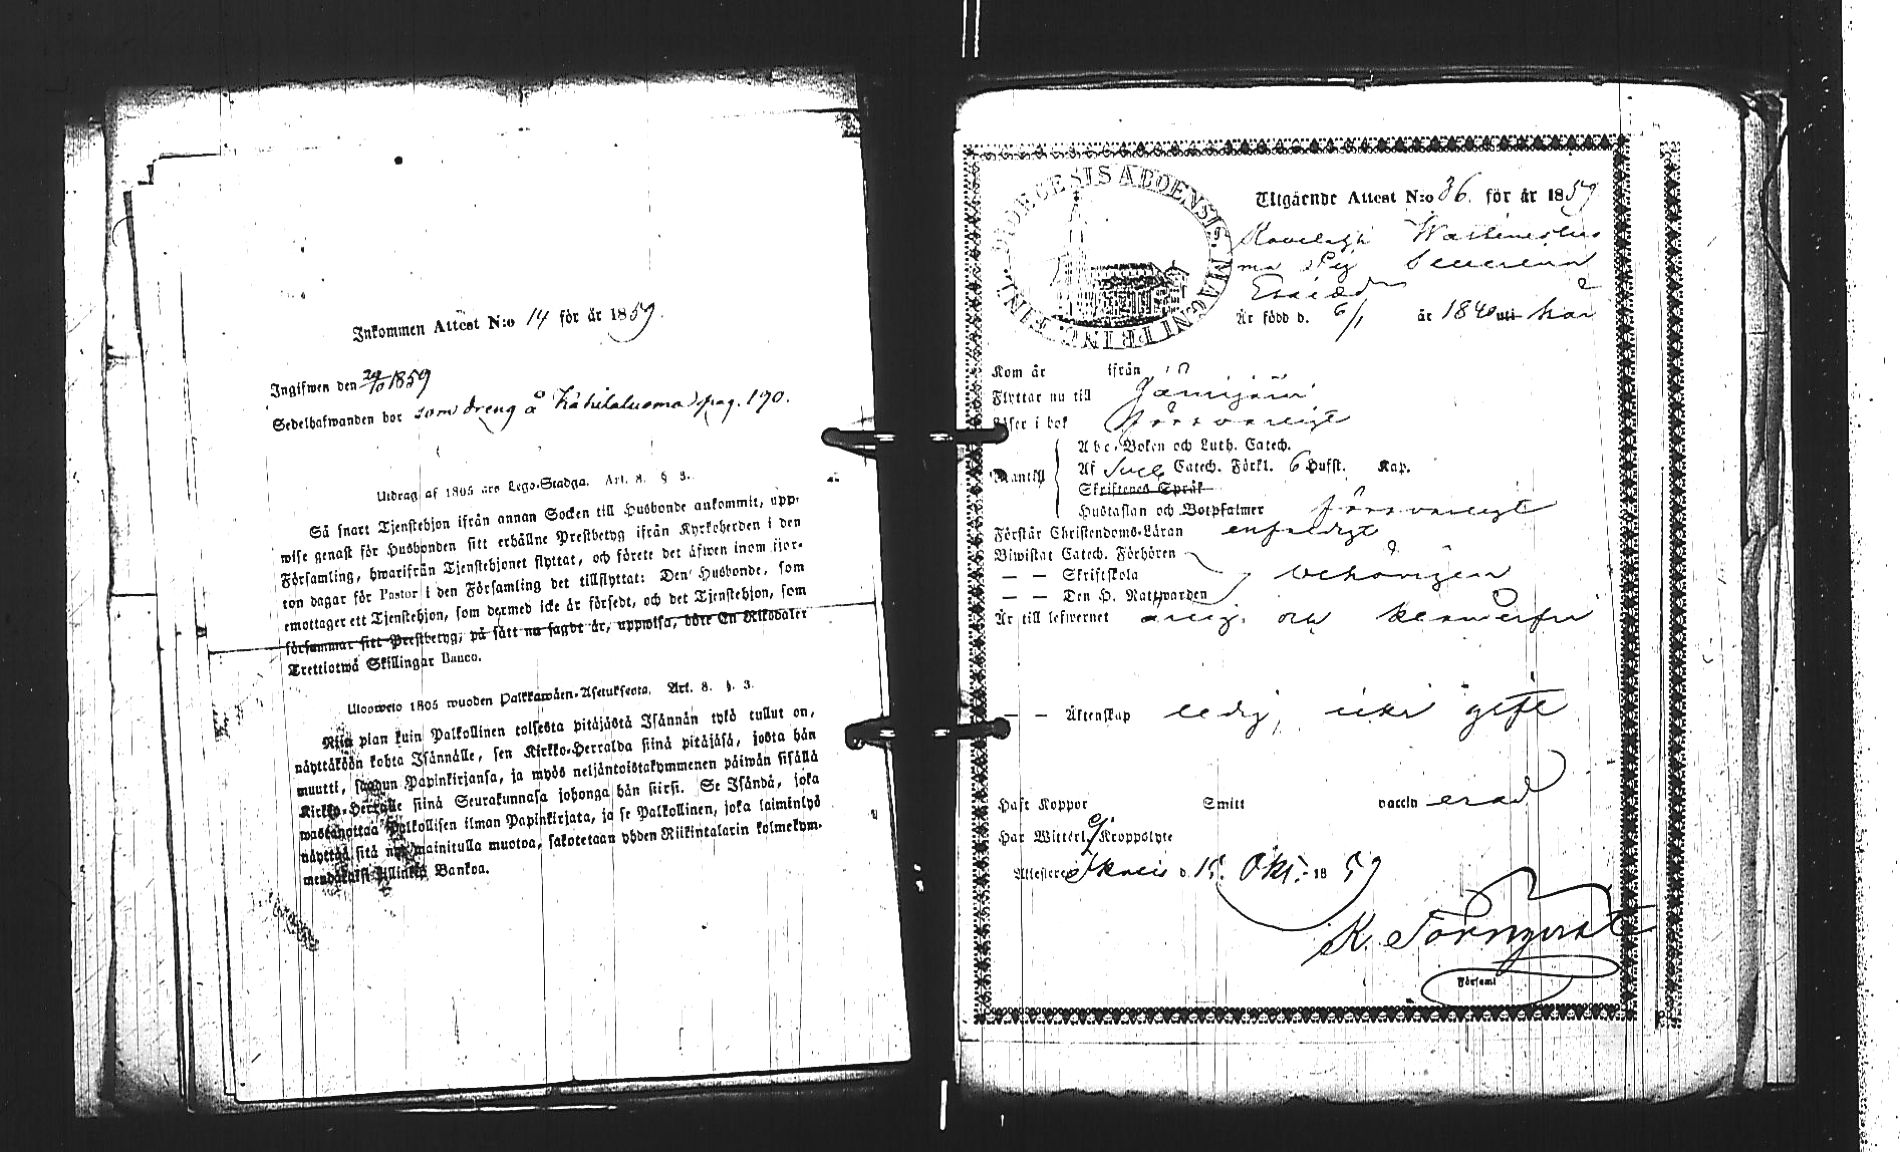 Inkommen Attest N:o 14 för år 1859.
Ingifwen den 29/10 1859
Sedelhafwanden bor som dreng å Kähilaluoma pag. 190.
Utdrag af 1805 års Lego-Stadga. Art. 8. § 3.
Så snart Tjenstehjon ifrån annan Socken till Husbonde ankommit, upp-
wise genast för Husbonden sitt erhållne Prestbetyg ifrån Kyrkoherden i den
Församling, hwarifrån Tjenstehjonet flyttat, och förete det äfwen inom fjor-
ton dagar för Pastor i den Församling det tillflyttat: Den Husbonde, som
emottager ett Tjenstehjon, som dermed icke är försedt, och det Tjenstehjon, som
försummar sitt Prestbetyg, på sätt nu sagdt är, uppwisa, böte En Riksdaler
Trettiotwå Skillingar Banco.
Ulosweto 1805 wuoden Palkkawäen-Asetuksesta. Art. 8. §. 3.
Niin pian kuin Palkollinen toisesta pitäjästä Isännän tykö tullut on,
näyttäköön kohta Isännälle, sen Kirkko-Herralda siinä pitäjäsä, josta hän
muutti, saadun Papinkirjansa, ja myös neljäntoistakymmenen päiwän sisällä
Kirkko-Herralle siinä Seurakunnasa johonga hän siirsi. Se Isändä, joka
wastanottaa Palkollisen ilman Papinkirjata, ja se Palkollinen, joka laiminlyö
näyttää sitä nyt mainitulla muotoa, sakotetaan yhden Riikintalarin kolmekym-
mendäkaksi Killinkiä Bankoa.
DIOECESIS ABOENSIS. MAGNI PRINC. FINL.
Utgående Attest N:o 36. för år 1859
Är född d. 6/1 år 1840 uti har
Kom år ifrån
Flyttar nu till Jämijärvi
Läser i bok försvarligt
Mantill
Abc-Boken och Luth. Catech.
Af Sveb Catech. Förkl. 6 Hufst. Kap.
Skriftenes Språk
Hustaflan och Botpsalmer försvarligt
Förstår Christendoms-Läran enfaldigt
Biwistat Catech. Förhören
— — Skriftskola behörigen
— — Den H. Nattwarden
Är till lefwernet ärlig och
— — Äktenskap ledig, icke gift
Haft Koppor Smitt vaccin erad
Har Witterl. ej Kroppslyte
Attesteras Ikalis d. 15. Okt. 1859
K. Törnqvist
Församl